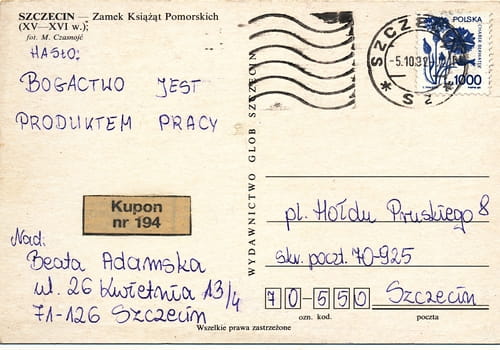 SZCZECIN — Zamek Książąt Pomorskich
(XV—XVI w.);
fot. M. Czasnojć
HASŁO:
BOGACTWO JEST
PRODUKTEM PRACY
Kupon
nr 194
Nad:
Beata Adamska
ul. 26 Kwietnia 13/4
71-126 Szczecin
Wszelkie prawa zastrzeżone
WYDAWNICTWO GLOB SZCZECIN
SZCZE
-5.10.
Sz
POLSKA
1000
pl. Hołdu Pruskiego 8
skr. poczt. 70-925
70-550 Szczecin
ozn. kod. poczta